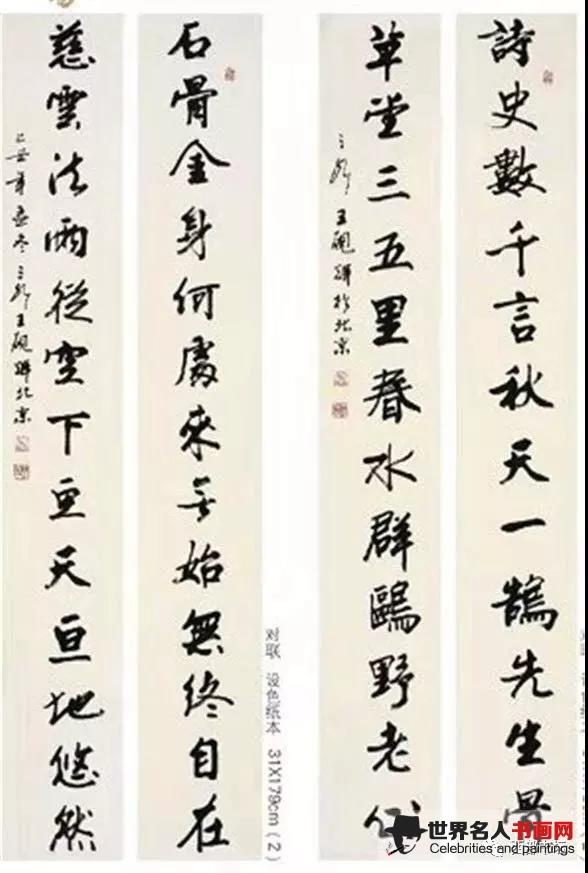 詩史數千言秋天一鵠先生骨
草堂三五里春水群鷗野老心
王 於北京
对联 设色纸本 31X179cm（2）
石骨金身何處來无始無終自在
慈雲法雨從空下亘天亘地悠然
己丑年孟冬 王 北京
世界名人书画网
Celebrities and paintings